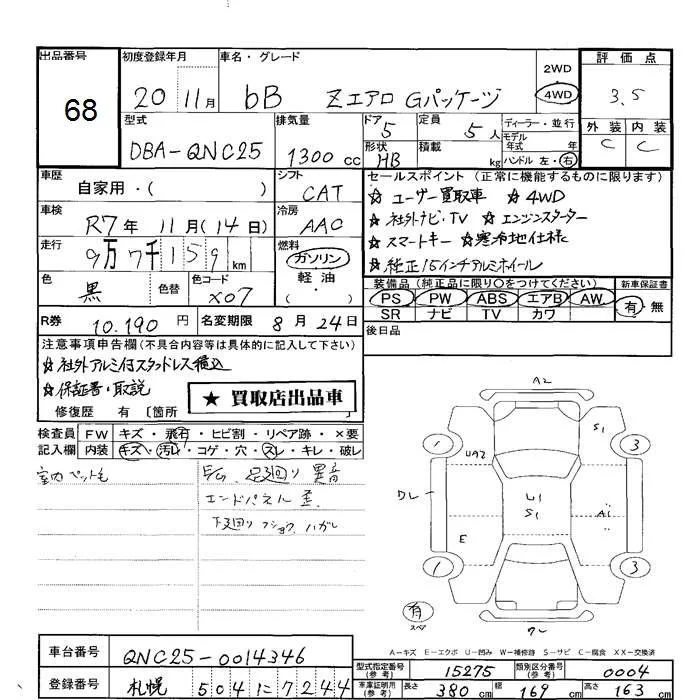 出品番号 68
初度登録年月 20 11月
車名・グレード bB Zエアロ Gパッケージ
2WD 4WD
評価点 3.5
外装 C 内装 C
型式 DBA-QNC25
排気量 1300 cc
ドア 5
定員 5人
ディーラー・並行
モデル年式 年
形状 HB
積載 kg
ハンドル 左・右
車歴 自家用・( )
シフト CAT
セールスポイント (正常に機能するものに限ります)
☆ ユーザー買取車 ☆ 4WD
☆ 社外ナビ・TV ☆ エンジンスターター
☆ スマートキー ☆寒冷地仕様
☆ 純正15インチアルミホイール
車検 R7年 11月(14日)
冷房 AAC
走行 9万7千159km
燃料 ガソリン
軽油・( )
色 黒
色替
色コード X07
装備品 (純正品に限り○をつけてください)
新車保証書 有・無
PS PW ABS エアB AW
SR ナビ TV カワ
R券 10.190 円
名変期限 8月24日
後日品
注意事項申告欄 (不具合内容等は具体的に記入して下さい)
☆社外アルミ付スタッドレス積込
☆保証書・取説
★ 買取店出品車
修復歴 有 〔箇所
検査員記入欄
FW キズ・飛石・ヒビ割・リペア跡・×要
内装 キズ・汚レ・コゲ・穴・スレ・キレ・破レ
室内ペット毛
足廻り 異音
エンドパネル 歪
下廻り フショク ハガレ
A2
S1
1 3
UA2
DL
U1
S1
A1
E
1 3
有
スペア
クレ
A-キズ E-エクボ U-凹み W-補修跡 S-サビ C-腐食 XX-交換済
車台番号 QNC25-0014346
登録番号 札幌 504 に 7244
型式指定番号(参考) 15275
類別区分番号(参考) 0004
車車証明用(参考) 長さ 380 cm 幅 169 cm 高さ 163 cm